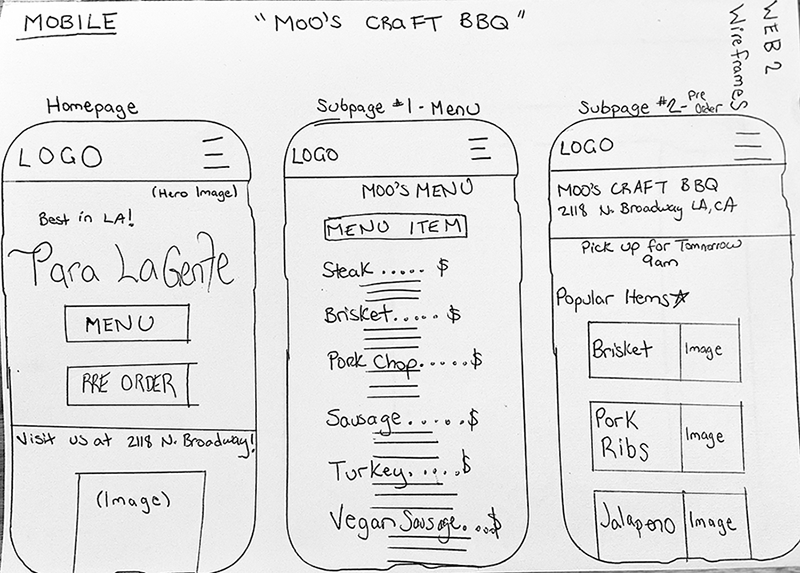 MOBILE
"MOO'S CRAFT BBQ"
WEB 2
Wireframes
Homepage
LOGO
(Hero Image)
Best in LA!
Para La Gente
MENU
PRE ORDER
Visit us at 2118 N. Broadway!
(Image)
Subpage #1 - Menu
LOGO
MOO'S MENU
MENU ITEM
Steak ..... $
Brisket..... $
Pork Chop..... $
Sausage..... $
Turkey..... $
Vegan Sausage... $
Subpage #2 - Pre Order
LOGO
MOO'S CRAFT BBQ
2118 N. Broadway LA, CA
Pick up for Tomorrow
9am
Popular Items
Brisket Image
Pork Ribs Image
Jalapeno Image